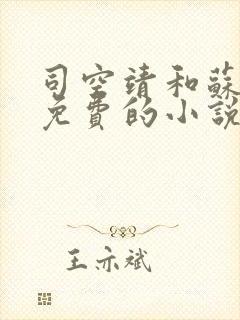 司空靖和蘇
免費的小說
王亦斌